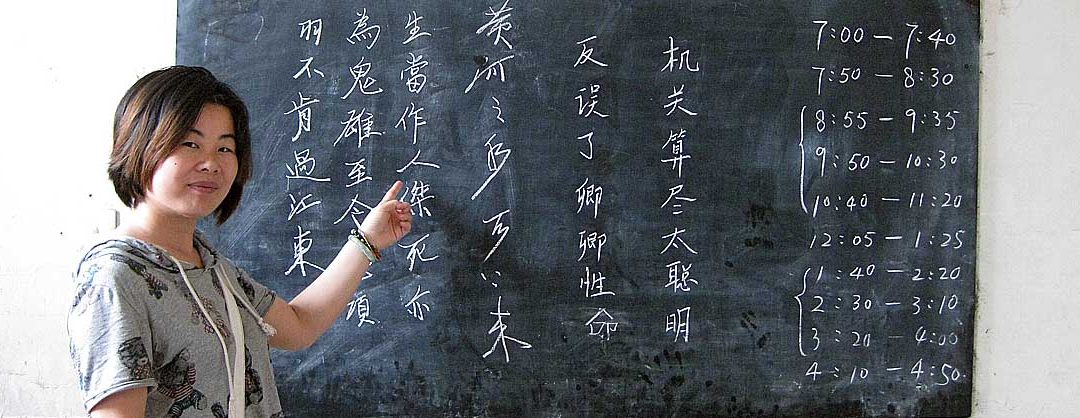 机关算尽太聪明
反误了卿卿性命
黄河之水天上来
生當作人傑死亦
為鬼雄至今項
羽不肯過江東
7:00 – 7:40
7:50 – 8:30
8:55 – 9:35
9:50 – 10:30
10:40 – 11:20
12:05 – 1:25
1:40 – 2:20
2:30 – 3:10
3:20 – 4:00
4:10 – 4:50